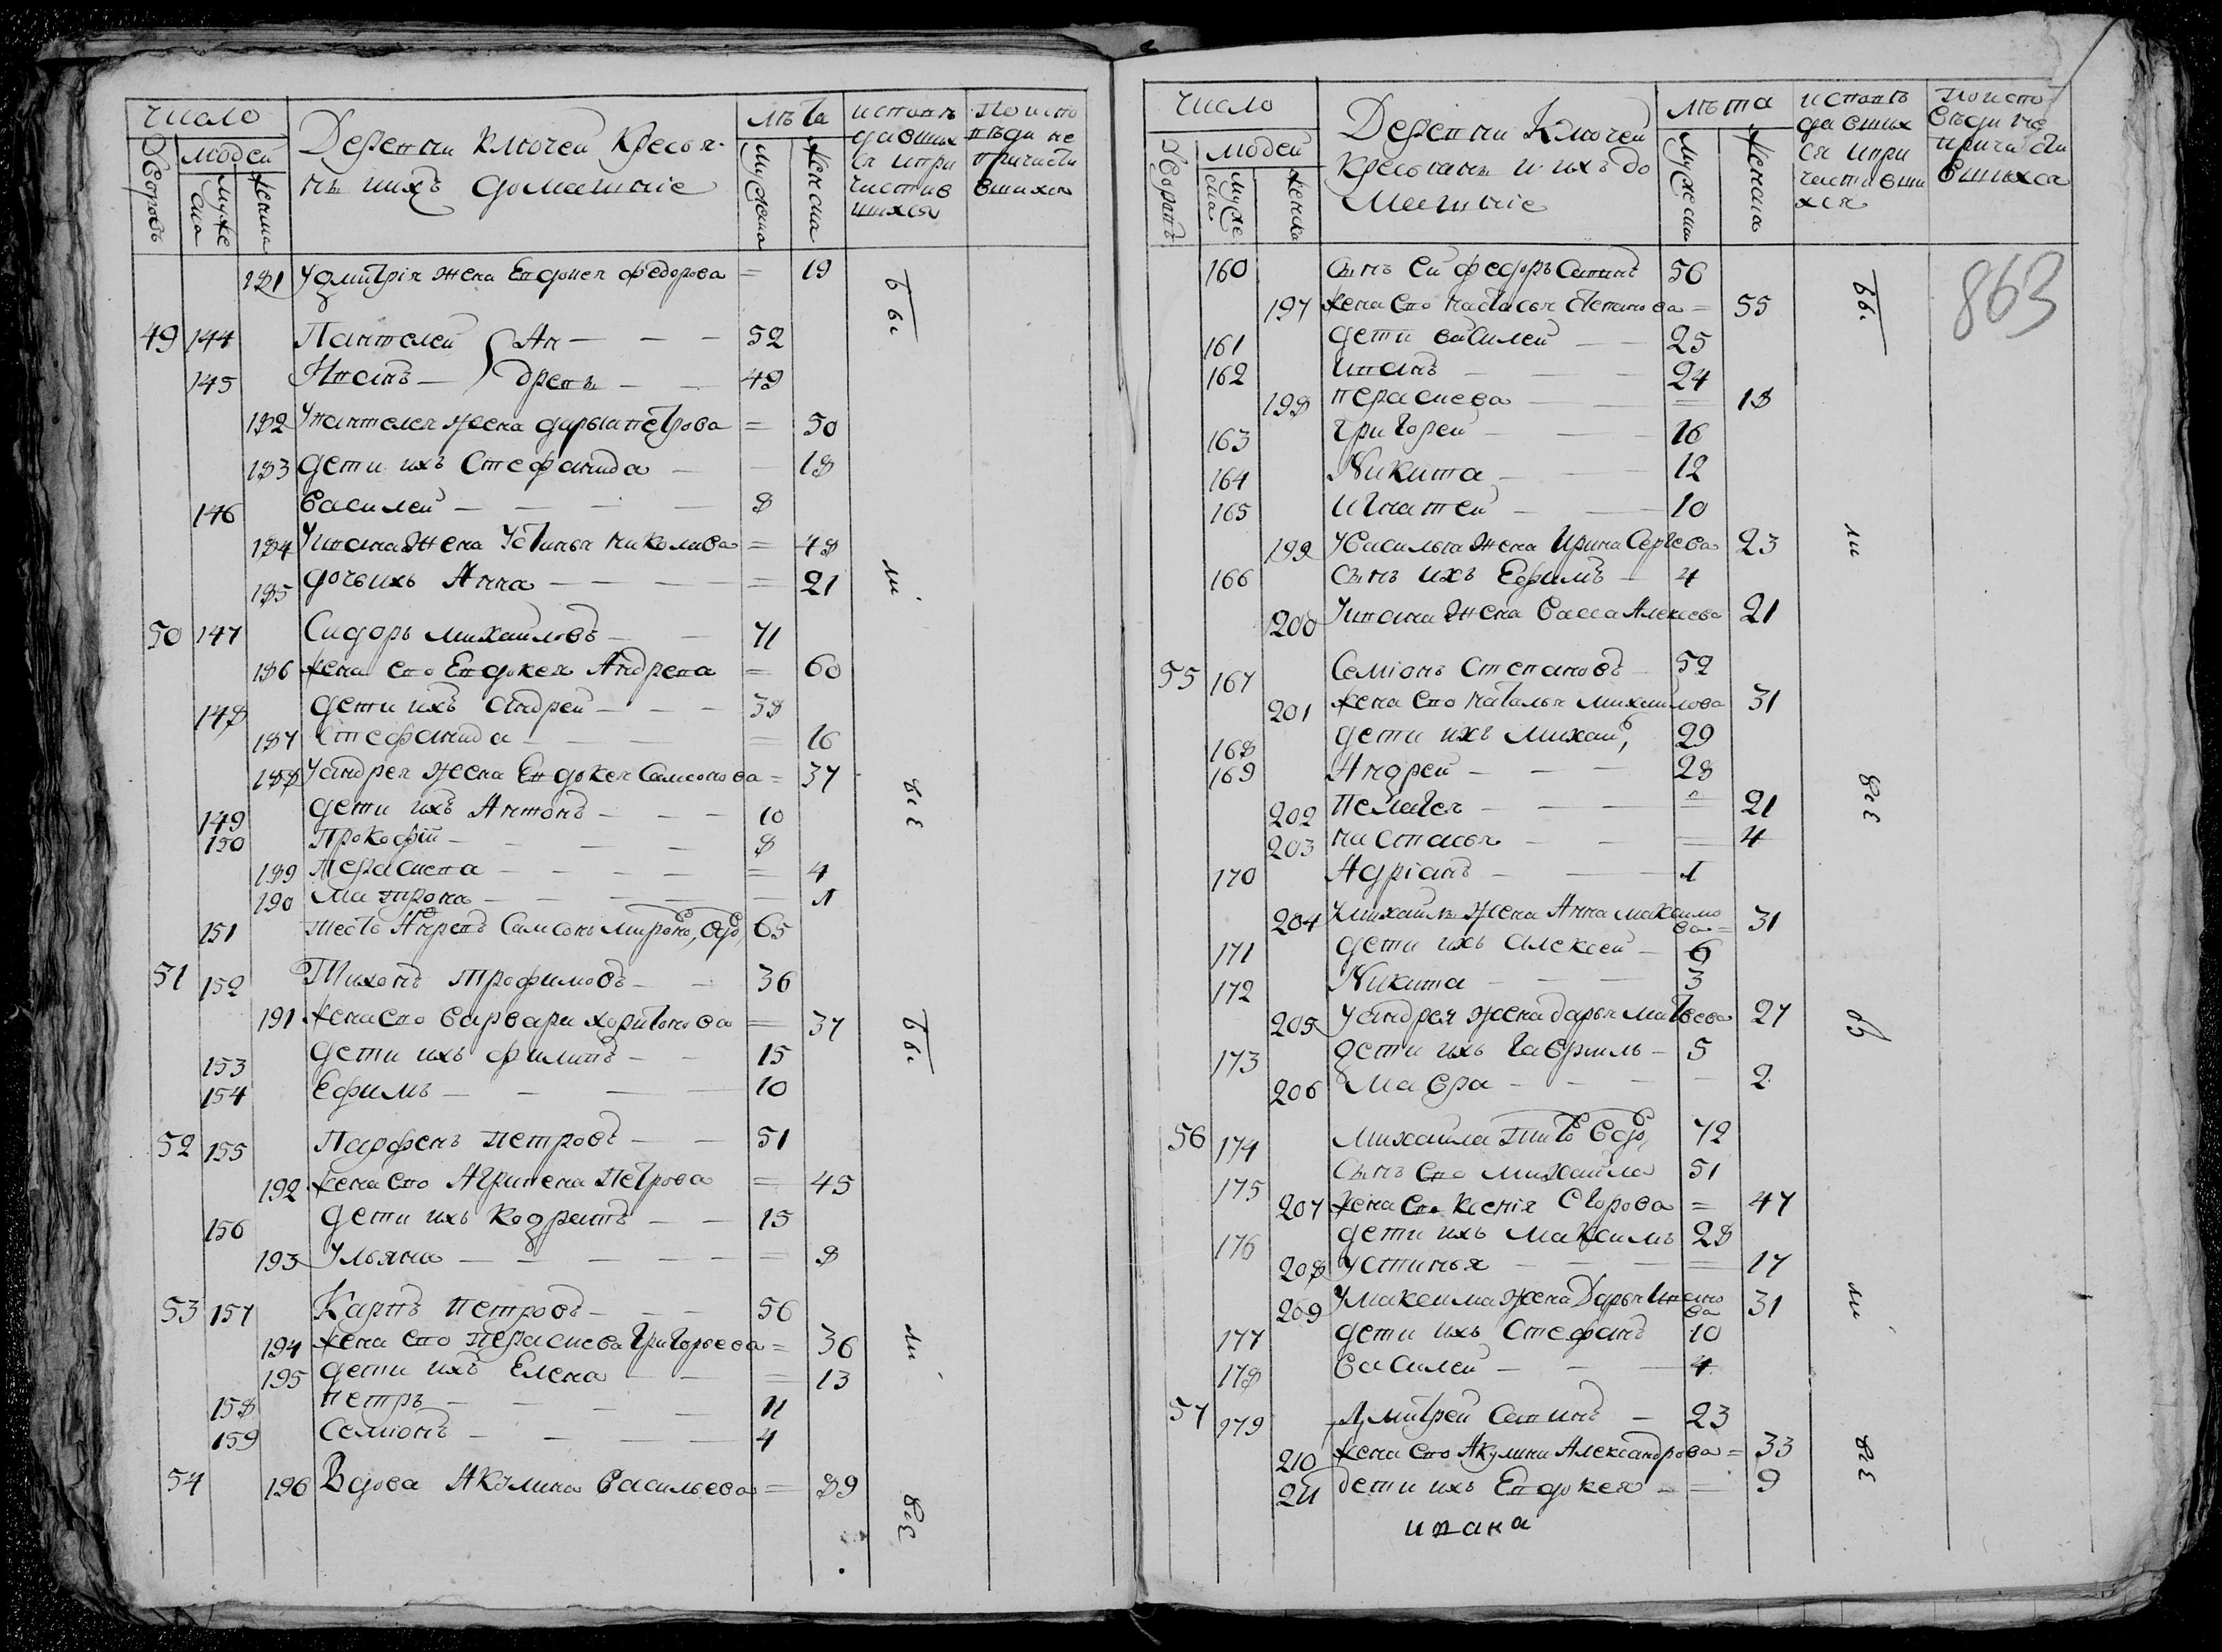 число
Дворовъ
людей
мужеска
женска
Деревни Ключей Кресья-
нъ иихъ домашніе
лѣта
мужеска
женска
исповѣ
давших
ся ипри
частив
шихся
По испо
вѣди не
причасти
вшихся
181 Удмитрія жена Евдокея федорова = 19
49 144 Пантелей Ан - - - 52
145 Иванъ - древы - - 49
182 Упантелея жена дарья петрова = 50
183 дети ихъ Стефанида - 18
146 Василей - - - - 8
184 Уивана жена Устинья николаева = 48
185 дочь ихъ Анна - - - - = 21
50 147 Сидоръ михайловъ - - 71
186 жена ево Евдокея Андрева = 60
148 дети ихъ андрей - - - 38
187 Стефанида - - - = 16
188 Уандрея жена Евдокея Самсонова = 37
149 дети ихъ Антонъ - - - 10
150 Прокофій - - - - 8
189 Парасчева - - - - = 4
190 Матрона - - - - - 1
151 тесть Андревъ Самсонъ мироно, вдо, 65
51 152 Тихонъ трофимовъ - - 36
191 жена ево варвара харитонова = 37
153 дети ихъ филипъ - - 15
154 Ефимъ - - - - 10
52 155 Парфенъ петровъ - - 51
192 жена ево Агрипена Петрова = 45
156 дети ихъ кодратъ - - 15
193 Ульяна - - - - = 8
53 157 Карпъ петровъ - - - 56
194 жена ево парасчева григорьева = 36
195 дети ихъ Елена - - = 13
158 петръ - - - - 11
159 Семіонъ - - - - 4
54 196 Вдова Акулина Васильева = 89
бы
ли
всѣ
бы
ли
всѣ
число
Дворовъ
людей
мужеска
женска
Деревни Ключей
кресьянъ и ихъ до
машніе
лѣта
мужеска
женска
исповѣ
давших
ся ипри
частивши
хся
По испо
вѣди не
причасти
вшихся
863
160 Сынъ ей федоръ Савинъ 56
197 жена ево настасья степанова = 55
161 дети василей - - 25
162 иванъ - - - 24
198 парасчева - - - = 18
163 григорей - - - 16
164 Никита - - - 12
165 игнатей - - - 10
199 Увасилья жена Ирина Сергева 23
166 сынъ ихъ Ефимъ - 4
200 Уивана жена васса Алексева 21
55 167 Семіонъ степановъ - 52
201 жена ево наталья михайлова 31
168 дети ихъ михай, 29
169 Андрей - - - 28
202 Пелагея - - - = 21
203 настасья - - - = 4
170 Адріанъ - - - 1
204 Умихайлы жена Анна максимо
ва = 31
171 дети ихъ алексей - 6
172 Никита - - - 3
205 Уандрея жена дарья матвева 27
173 дети ихъ гавриилъ - 5
206 Мавра - - - - 2
56 174 михайла титовъ вдо, 72
175 Сынъ ево михайла 51
207 жена ево ксенія егорова = 47
176 дети ихъ максимъ 28
208 Устинья - - - = 17
209 Умаксима жена Дарья Ивано
ва 31
177 дети ихъ Стефанъ 10
178 василей - - - 4
57 179 Дмитрей Савинъ - 23
210 жена ево Акулина Александрова = 33
211 дети ихъ Евдокея - = 9
ивана
бы
ли
всѣ
бы
ли
всѣ